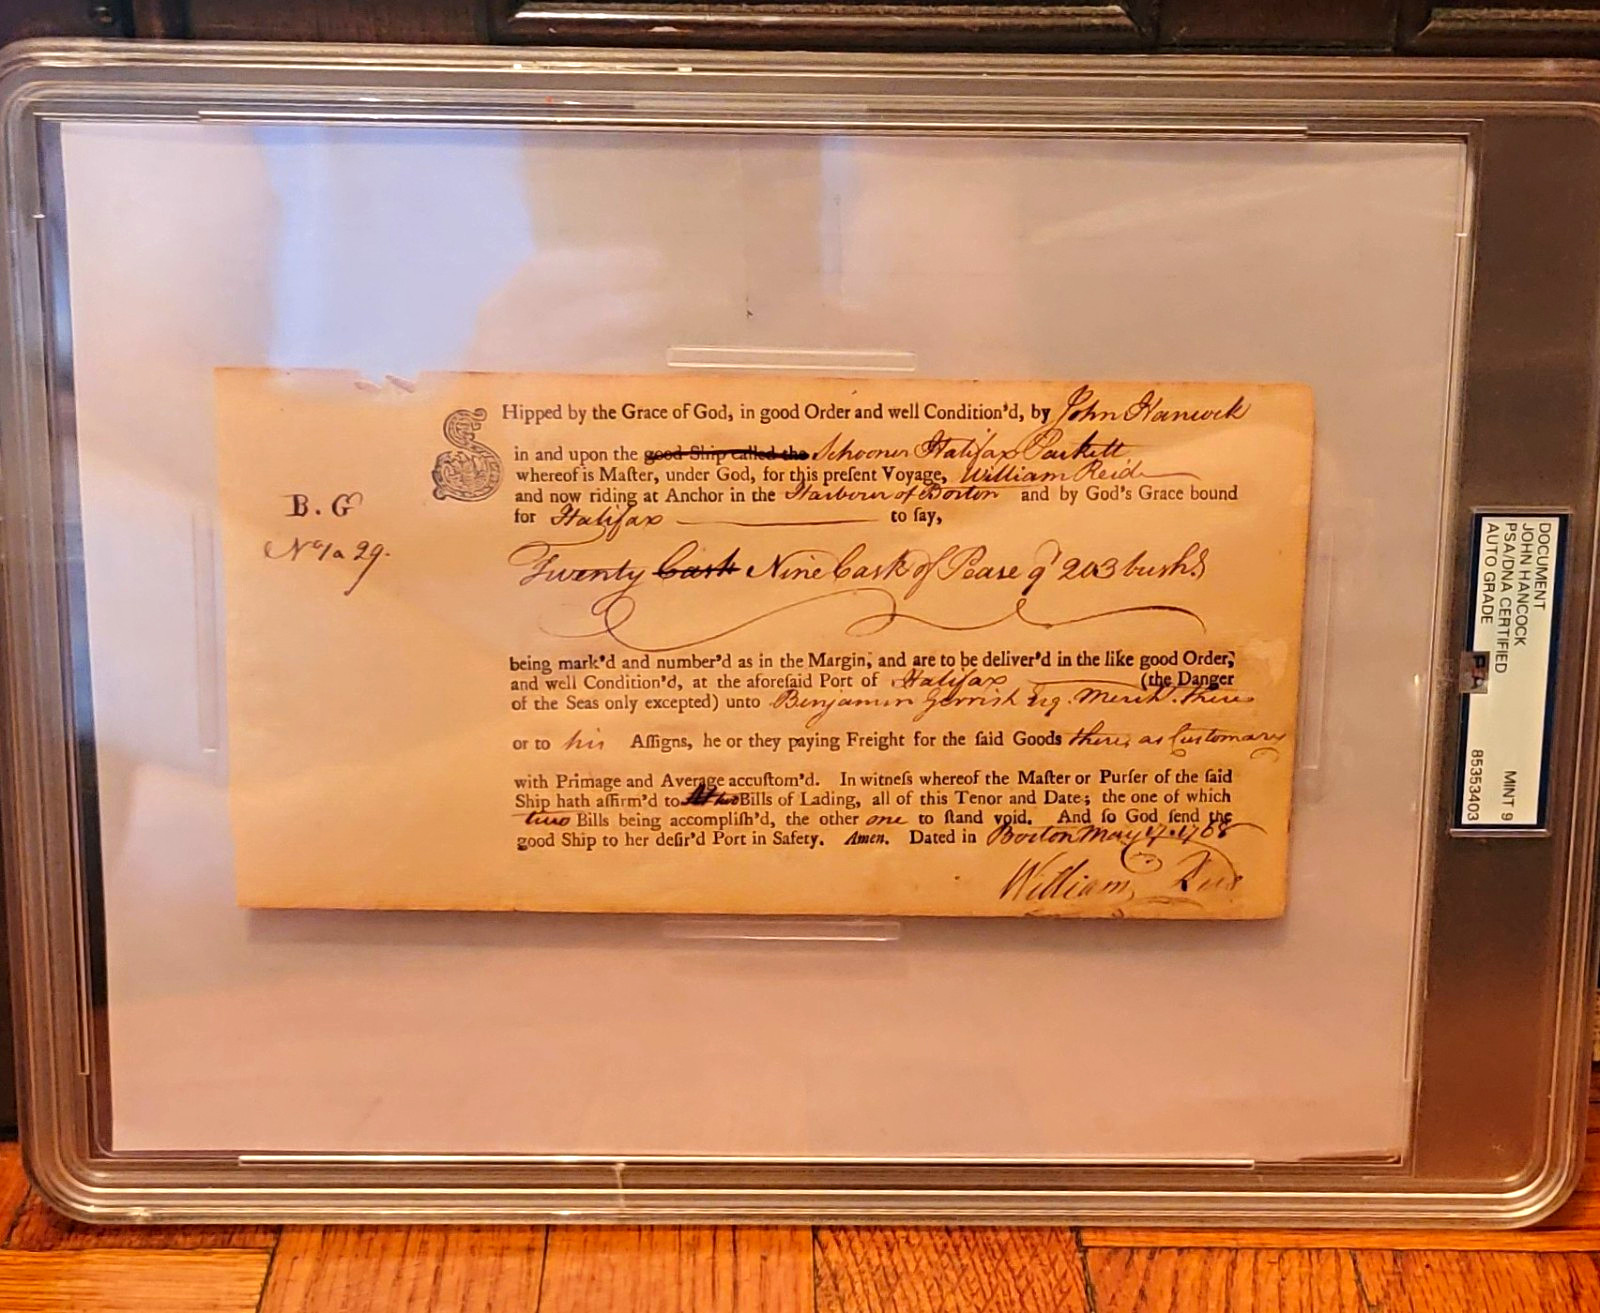 SHipped by the Grace of God, in good Order and well Condition'd, by John Hancock
in and upon the good Ship called the Schooner Halifax Packett
whereof is Maſter, under God, for this preſent Voyage, William Reid
and now riding at Anchor in the Harbour of Boston and by God's Grace bound
for Halifax to ſay,
B. G
No 1 a 29.
Twenty Cask Nine Cask of Pease qt 203 bushs
being mark'd and number'd as in the Margin, and are to be deliver'd in the like good Order,
and well Condition'd, at the aforeſaid Port of Halifax (the Danger
of the Seas only excepted) unto Benjamin Gerrish Esq. Mercht. there
or to his Aſſigns, he or they paying Freight for the ſaid Goods there, as Customary
with Primage and Average accuſtom'd. In witneſs whereof the Maſter or Purſer of the ſaid
Ship hath affirm'd to two Bills of Lading, all of this Tenor and Date; the one of which
two Bills being accompliſh'd, the other one to ſtand void. And ſo God ſend the
good Ship to her deſir'd Port in Safety. Amen. Dated in Boston May 17. 1768
William Reid
DOCUMENT
JOHN HANCOCK
PSA/DNA CERTIFIED
AUTO GRADE MINT 9
85353403